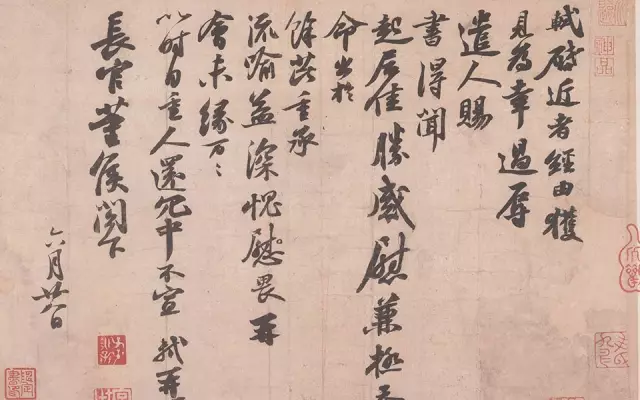 軾啓近者經由獲
見為幸過辱
遣人賜
書得聞
起居佳勝感慰兼極忝
命出於
餘芘重承
流喻益深愧慰畏再
會未緣万〻
以時自重人還冗中不宣 軾再
長官董侯閤下
六月廿八日
神品